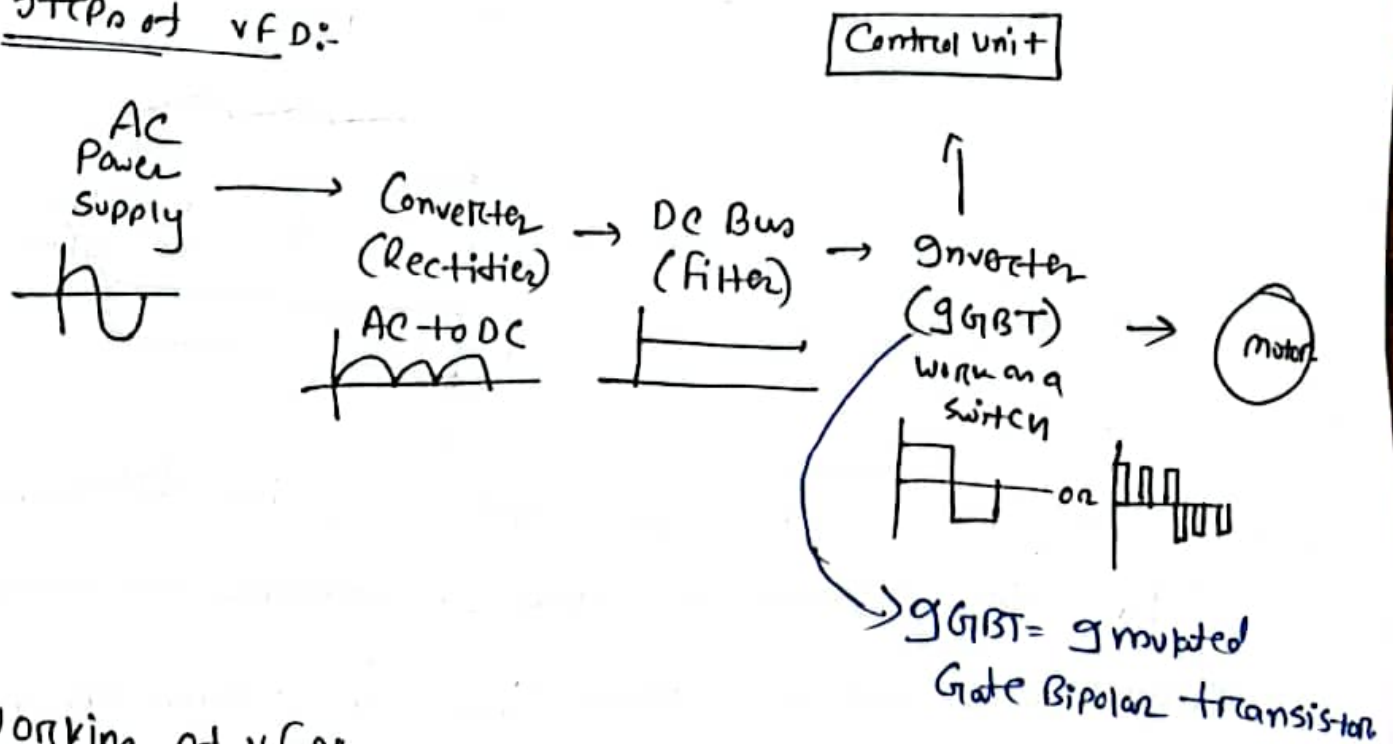 Steps of VFD:-
Control Unit
AC
Power
Supply
Converter
(Rectifier)
AC to DC
DC Bus
(Filter)
Inverter
(IGBT)
work as a
switch
or
Motor
IGBT = Insulated
Gate Bipolar transistor
Working of VFD: